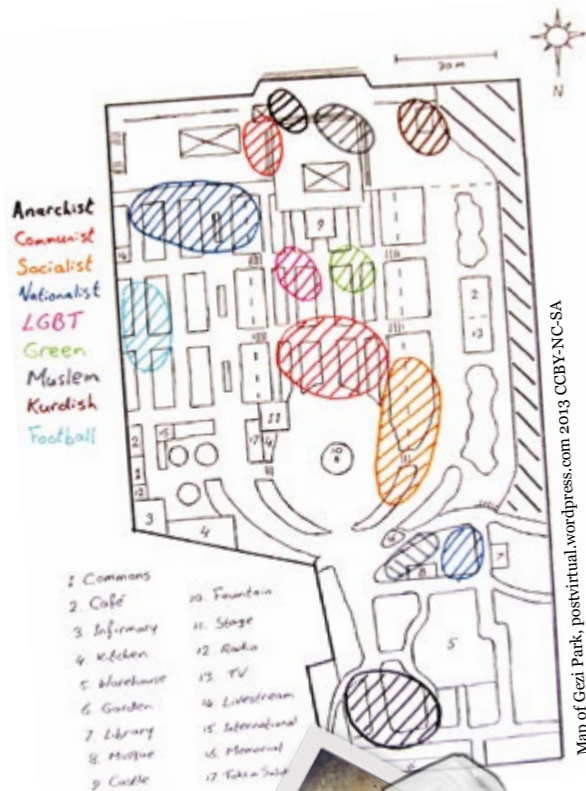 N
20 m
Anarchist
Communist
Socialist
Nationalist
LGBT
Green
Muslem
Kurdish
Football
9
14
2
13
11
2
15
1
12
17
4
10
8
3
4
16
7
8
5
6
1 Commons
2. Café
3 Infirmary
4 Kitchen
5 Warehouse
6. Garden
7. Library
8. Mosque
9 Castle
10. Fountain
11. Stage
12 Radio
13. TV
14 Livestream
15. International
16. Memorial
17
Map of Gezi Park, postvirtual.wordpress.com 2013 CCBY-NC-SA